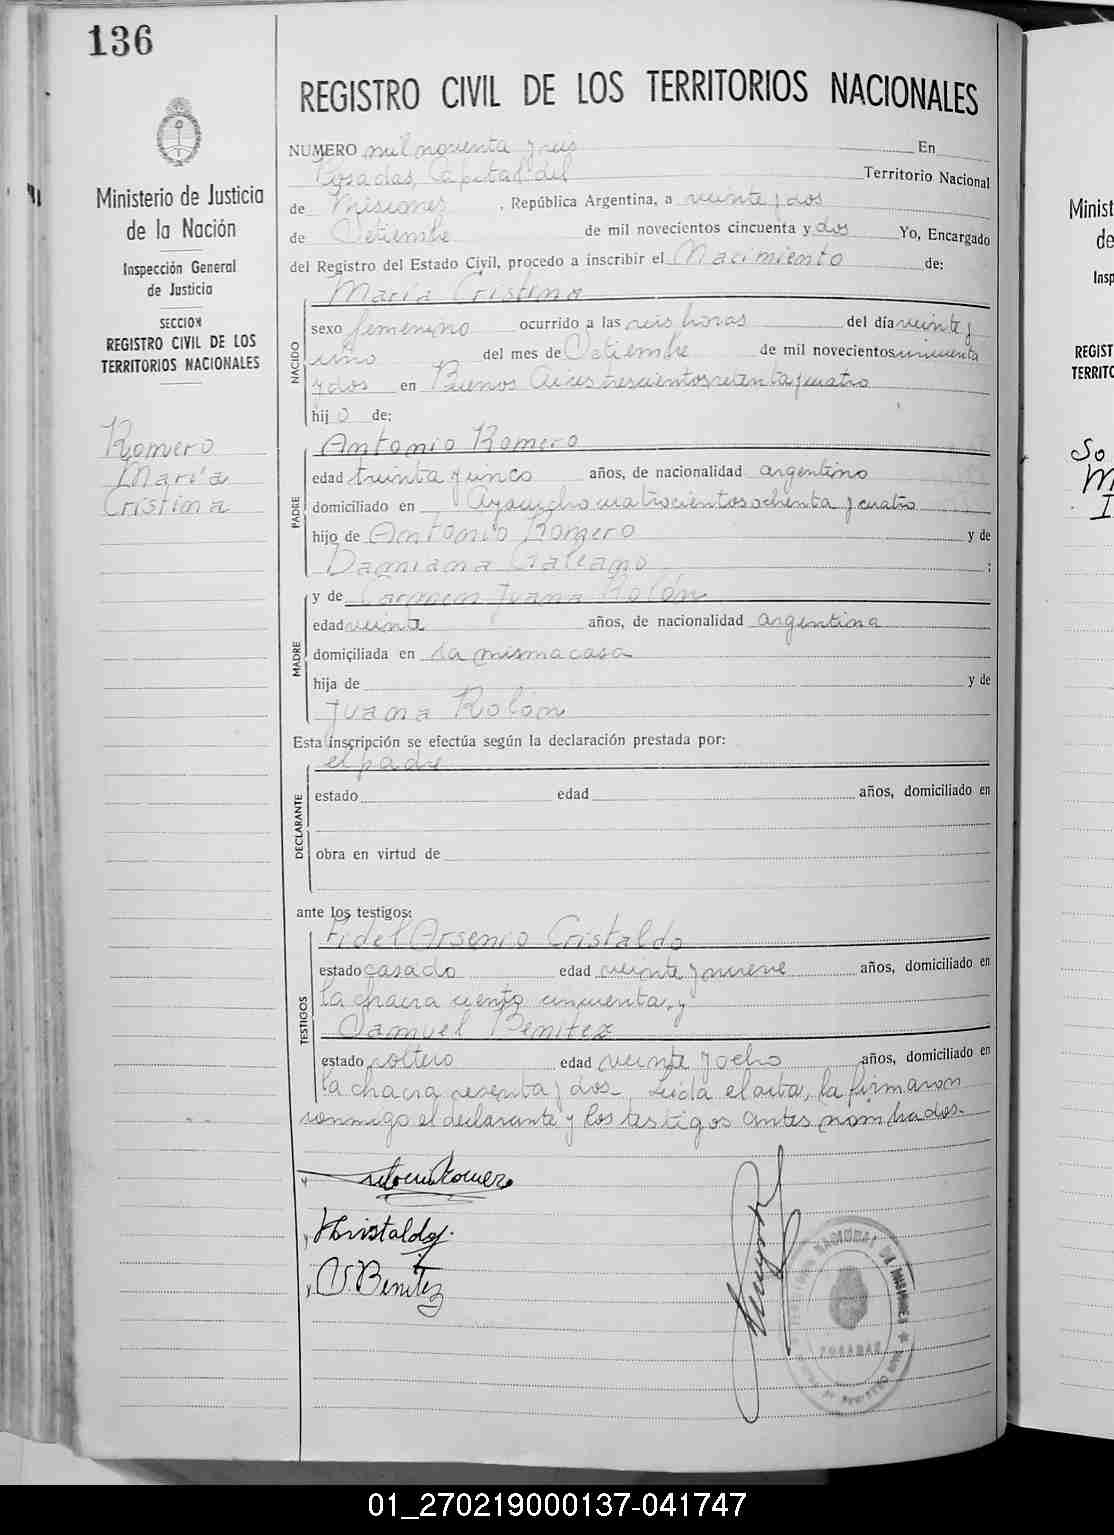 136
REGISTRO CIVIL DE LOS TERRITORIOS NACIONALES
Ministerio de Justicia
de la Nación
Inspección General
de Justicia
SECCION
REGISTRO CIVIL DE LOS
TERRITORIOS NACIONALES
Romero
María
Cristina
NUMERO mil noventa y seis En
Posadas, Capital del Territorio Nacional
de Misiones, República Argentina, a veinte y dos
de Setiembre de mil novecientos cincuenta y dos Yo, Encargado
del Registro del Estado Civil, procedo a inscribir el Nacimiento de:
NACIDO
María Cristina
sexo femenino ocurrido a las seis horas del día veinte y
uno del mes de Setiembre de mil novecientos cincuenta
y dos en Buenos Aires trescientos setenta y cuatro
hij o de:
PADRE
Antonio Romero
edad treinta y cinco años, de nacionalidad argentino
domiciliado en Ayacucho cuatrocientos ochenta y cuatro
hijo de Antonio Romero y de
Damiana Galeano ;
MADRE
y de Carmen Juana Rolón
edad veinte años, de nacionalidad argentina
domiciliada en la misma casa
hija de y de
Juana Rolón
Esta inscripción se efectúa según la declaración prestada por:
el padre
DECLARANTE
estado edad años, domiciliado en
obra en virtud de
ante los testigos:
TESTIGOS
Fidel Arsenio Cristaldo
estado casado edad veinte y nueve años, domiciliado en
la chacra ciento cincuenta, y
Samuel Benitez
estado soltero edad veinte y ocho años, domiciliado en
la chacra sesenta y dos. Leída el acta, la firmaron
conmigo el declarante y los testigos antes nombrados.
Romero
Cristaldo
Benitez
NACIONAL DE MISIONES
POSADAS
Minist
de
Insp
REGIST
TERRITO
So
M
I
01_270219000137-041747